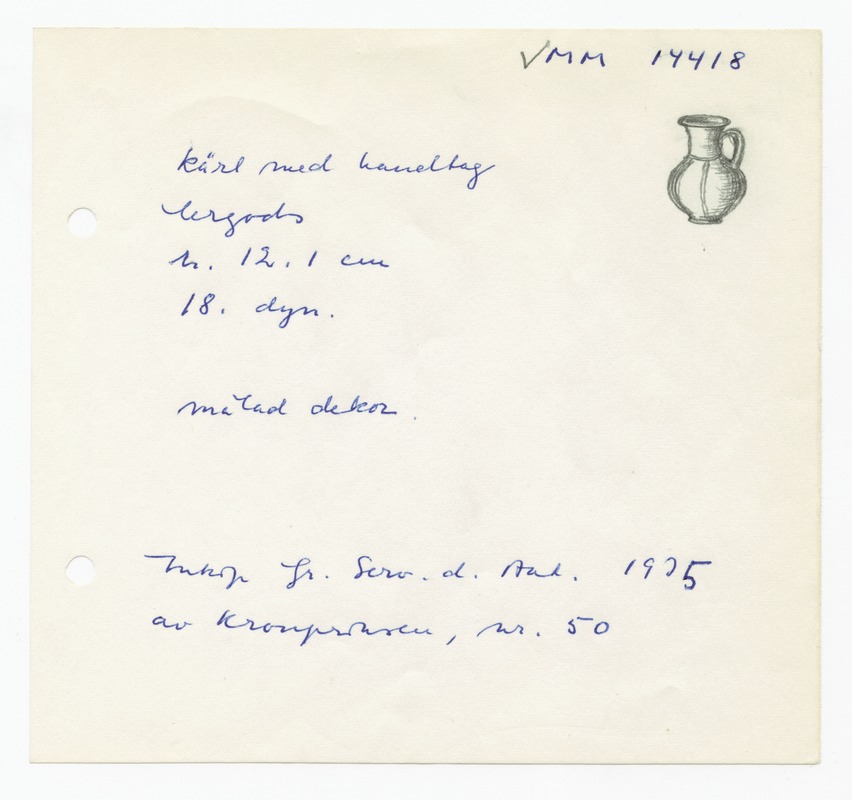 ✓MM 14418
kärl med handtag
lergods
h. 12.1 cm
18. dyn.
målad dekor.
Inköp fr. Serv. d. Ant. 1935
av Kronprinsen, nr. 50